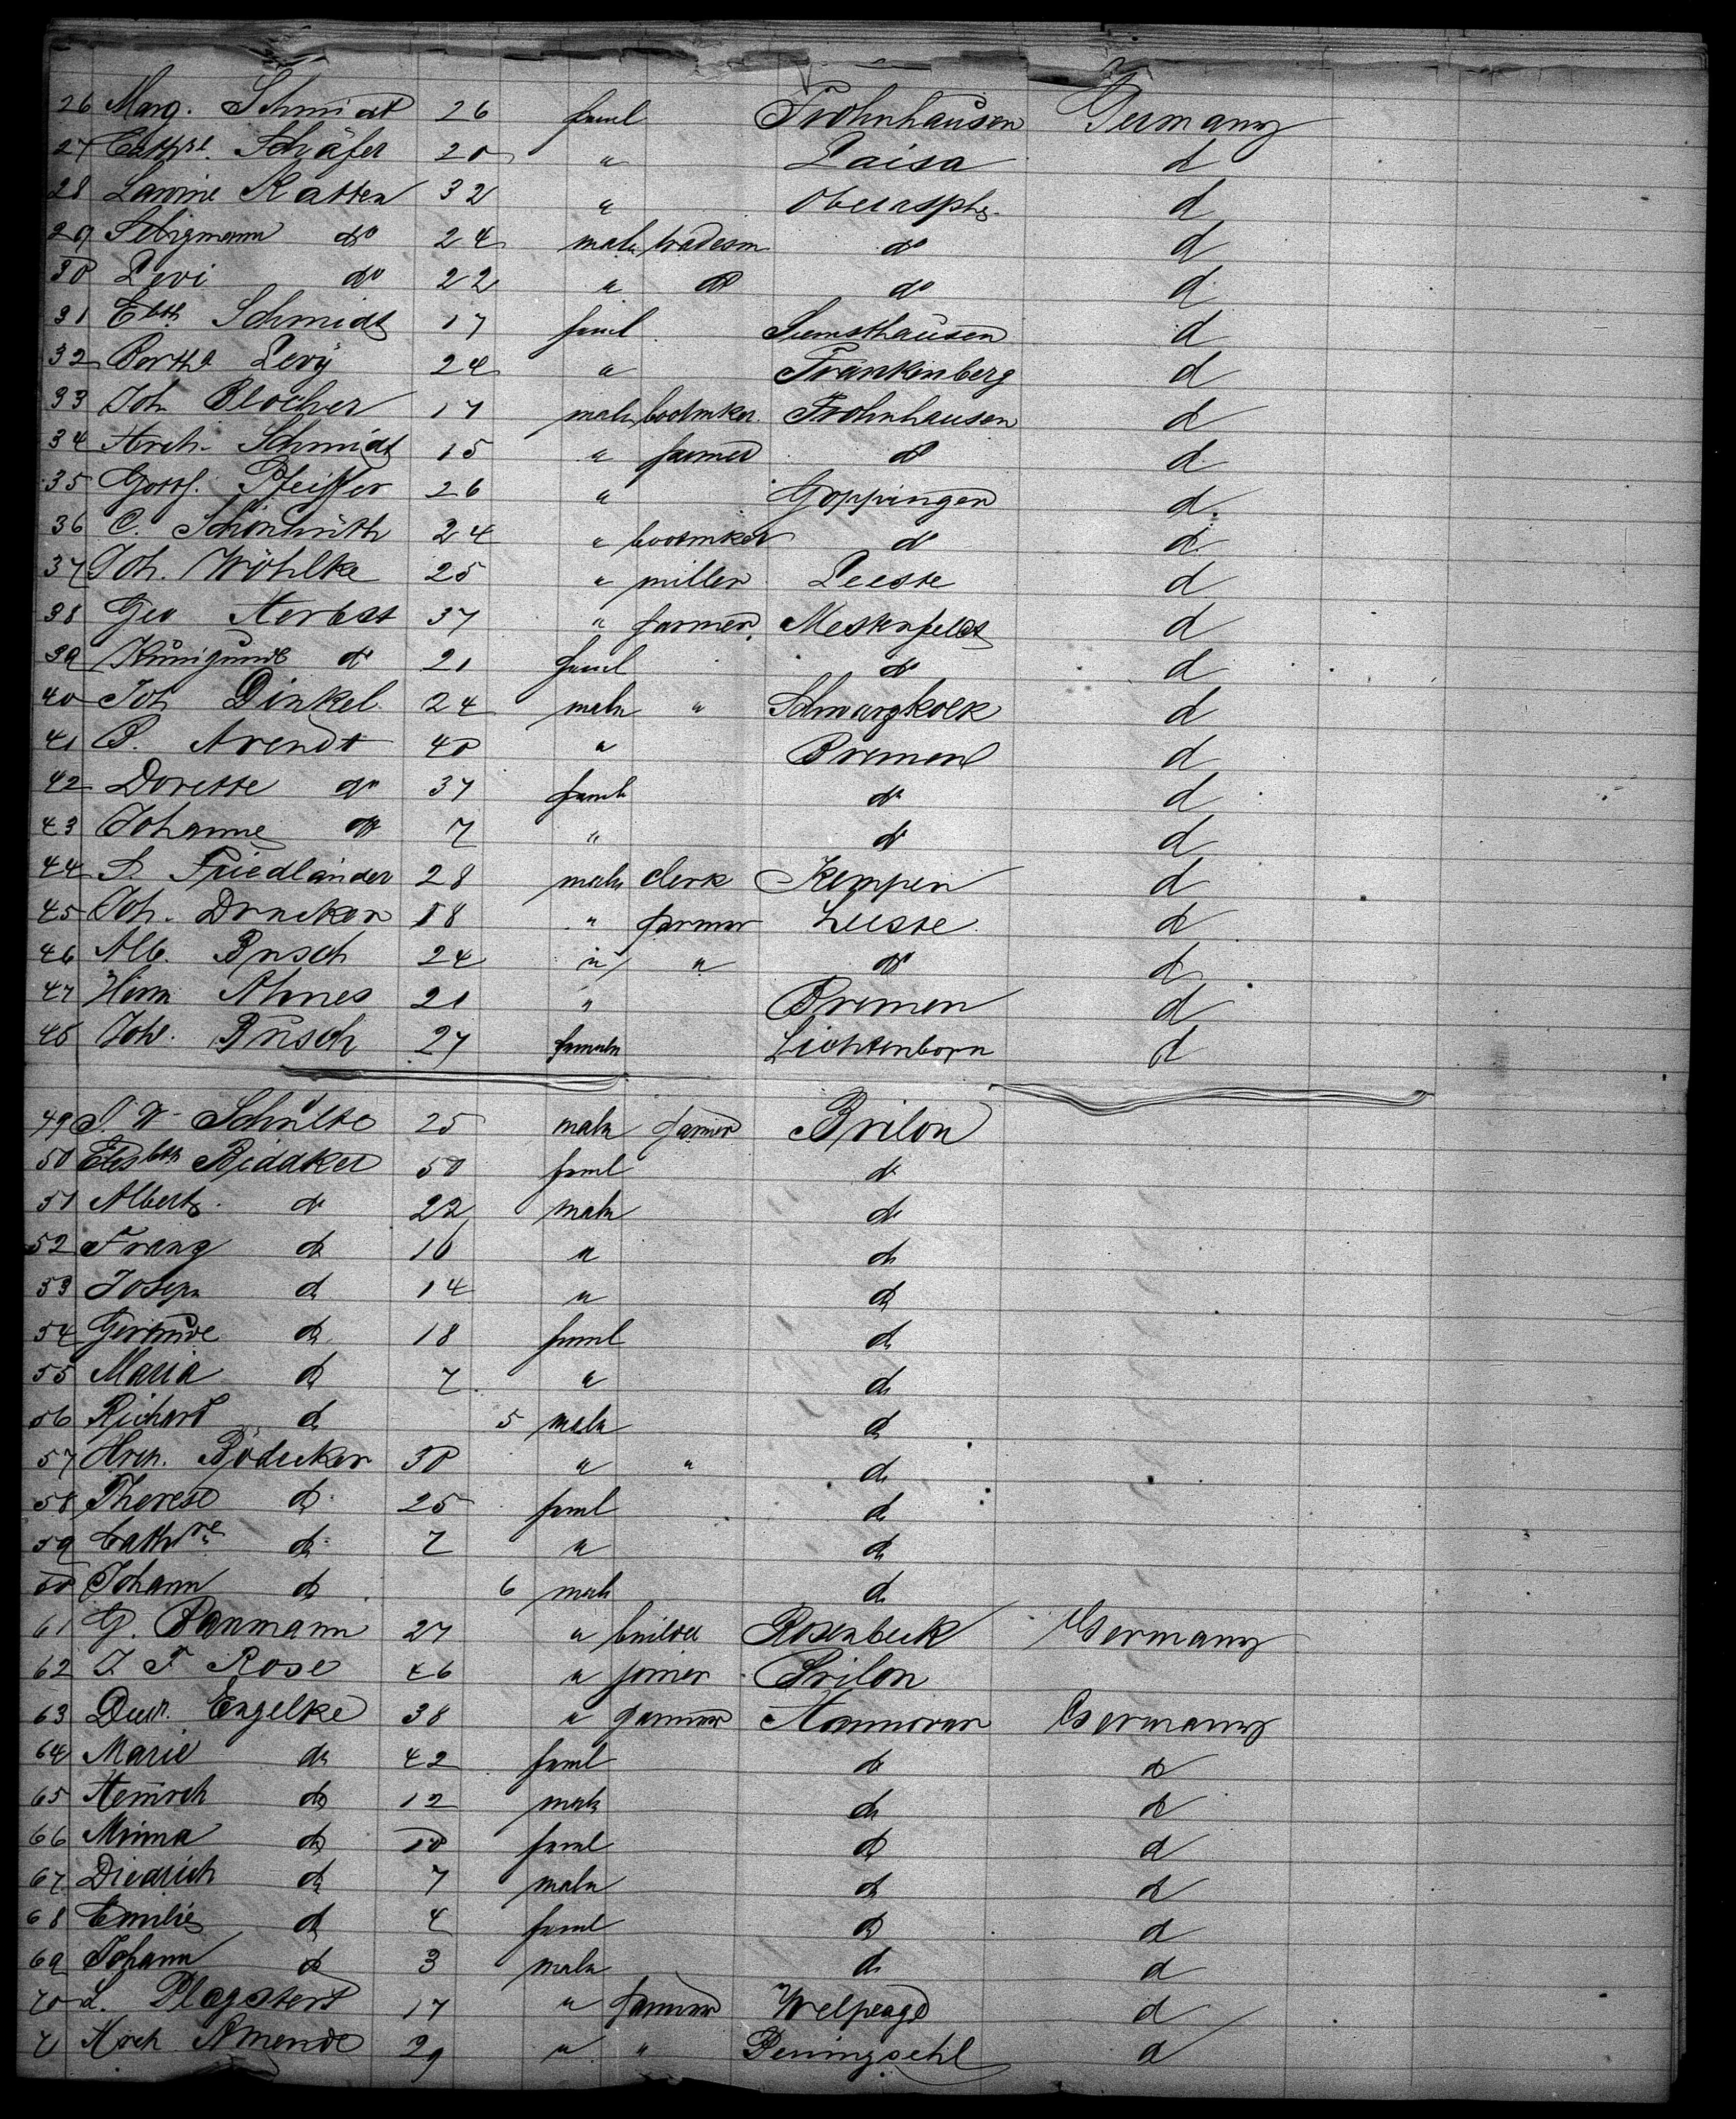 26 Marg. Schmidt 26 faml Frohnhausen Germany
27 Cathre. Schäfer 20 " Laisa d
28 Katten 32 " Oberasphe d
29 Seligmann do 24 male tradesm do d
30 Levi do 22 " do do d
31 Elbth Schmidt 17 faml d
32 Bertha Levÿ 24 " Frankenberg d
33 Joh Blöcher 17 male bootmker. Frohnhausen d
34 Hrch. Schmidt 15 " farmer do d
35 Gottf. Pfeiffer 26 " Goppingen d
36 C. 24 " bootmker do d
37 Joh. Wöhlke 25 " miller Leeste d
38 Geo Herbst 37 " farmer d
39 Kunigunde do 21 faml do d
40 Joh Dinkel 24 male " d
41 Arendt 40 " Bremen d
42 Dorette do 37 faml do d
43 Johanne do 7 " do d
44 S. Friedländer 28 male clerk Kempen d
45 Joh. 18 " farmer Leeste d
46 Alb. Busch 24 " " do d
47 Herm Ahnes 21 " Bremen d
48 Joh. Busch 27 female Lichtenborn d
49 Schulte 25 male farmer Brilon
50 Elisbeth 50 faml do
51 Albert do 22 male do
52 Franz do 16 " do
53 Joseph do 14 " do
54 Gertrude do 18 faml do
55 Maria do 7 " do
56 Richard do 5 male do
57 Hrch. Bödecker 30 " " do
58 Therese do 25 faml do
59 Cathne do 7 " do
60 Johann do 6 male do
61 G. 27 " builder Rosenbeck Germany
62 J F Rose 46 " joiner Brilon
63 Died. Engelke 38 " farmer Hannover Germany
64 Marie do 42 faml do do
65 Heinrch do 12 male do do
66 Minna do 10 faml do d
67 Diedrich do 7 male do d
68 Emilie do 4 faml do d
69 Johann do 3 male do d
70 L. 17 " farmer d
71 Hrch Amende 29 " " d